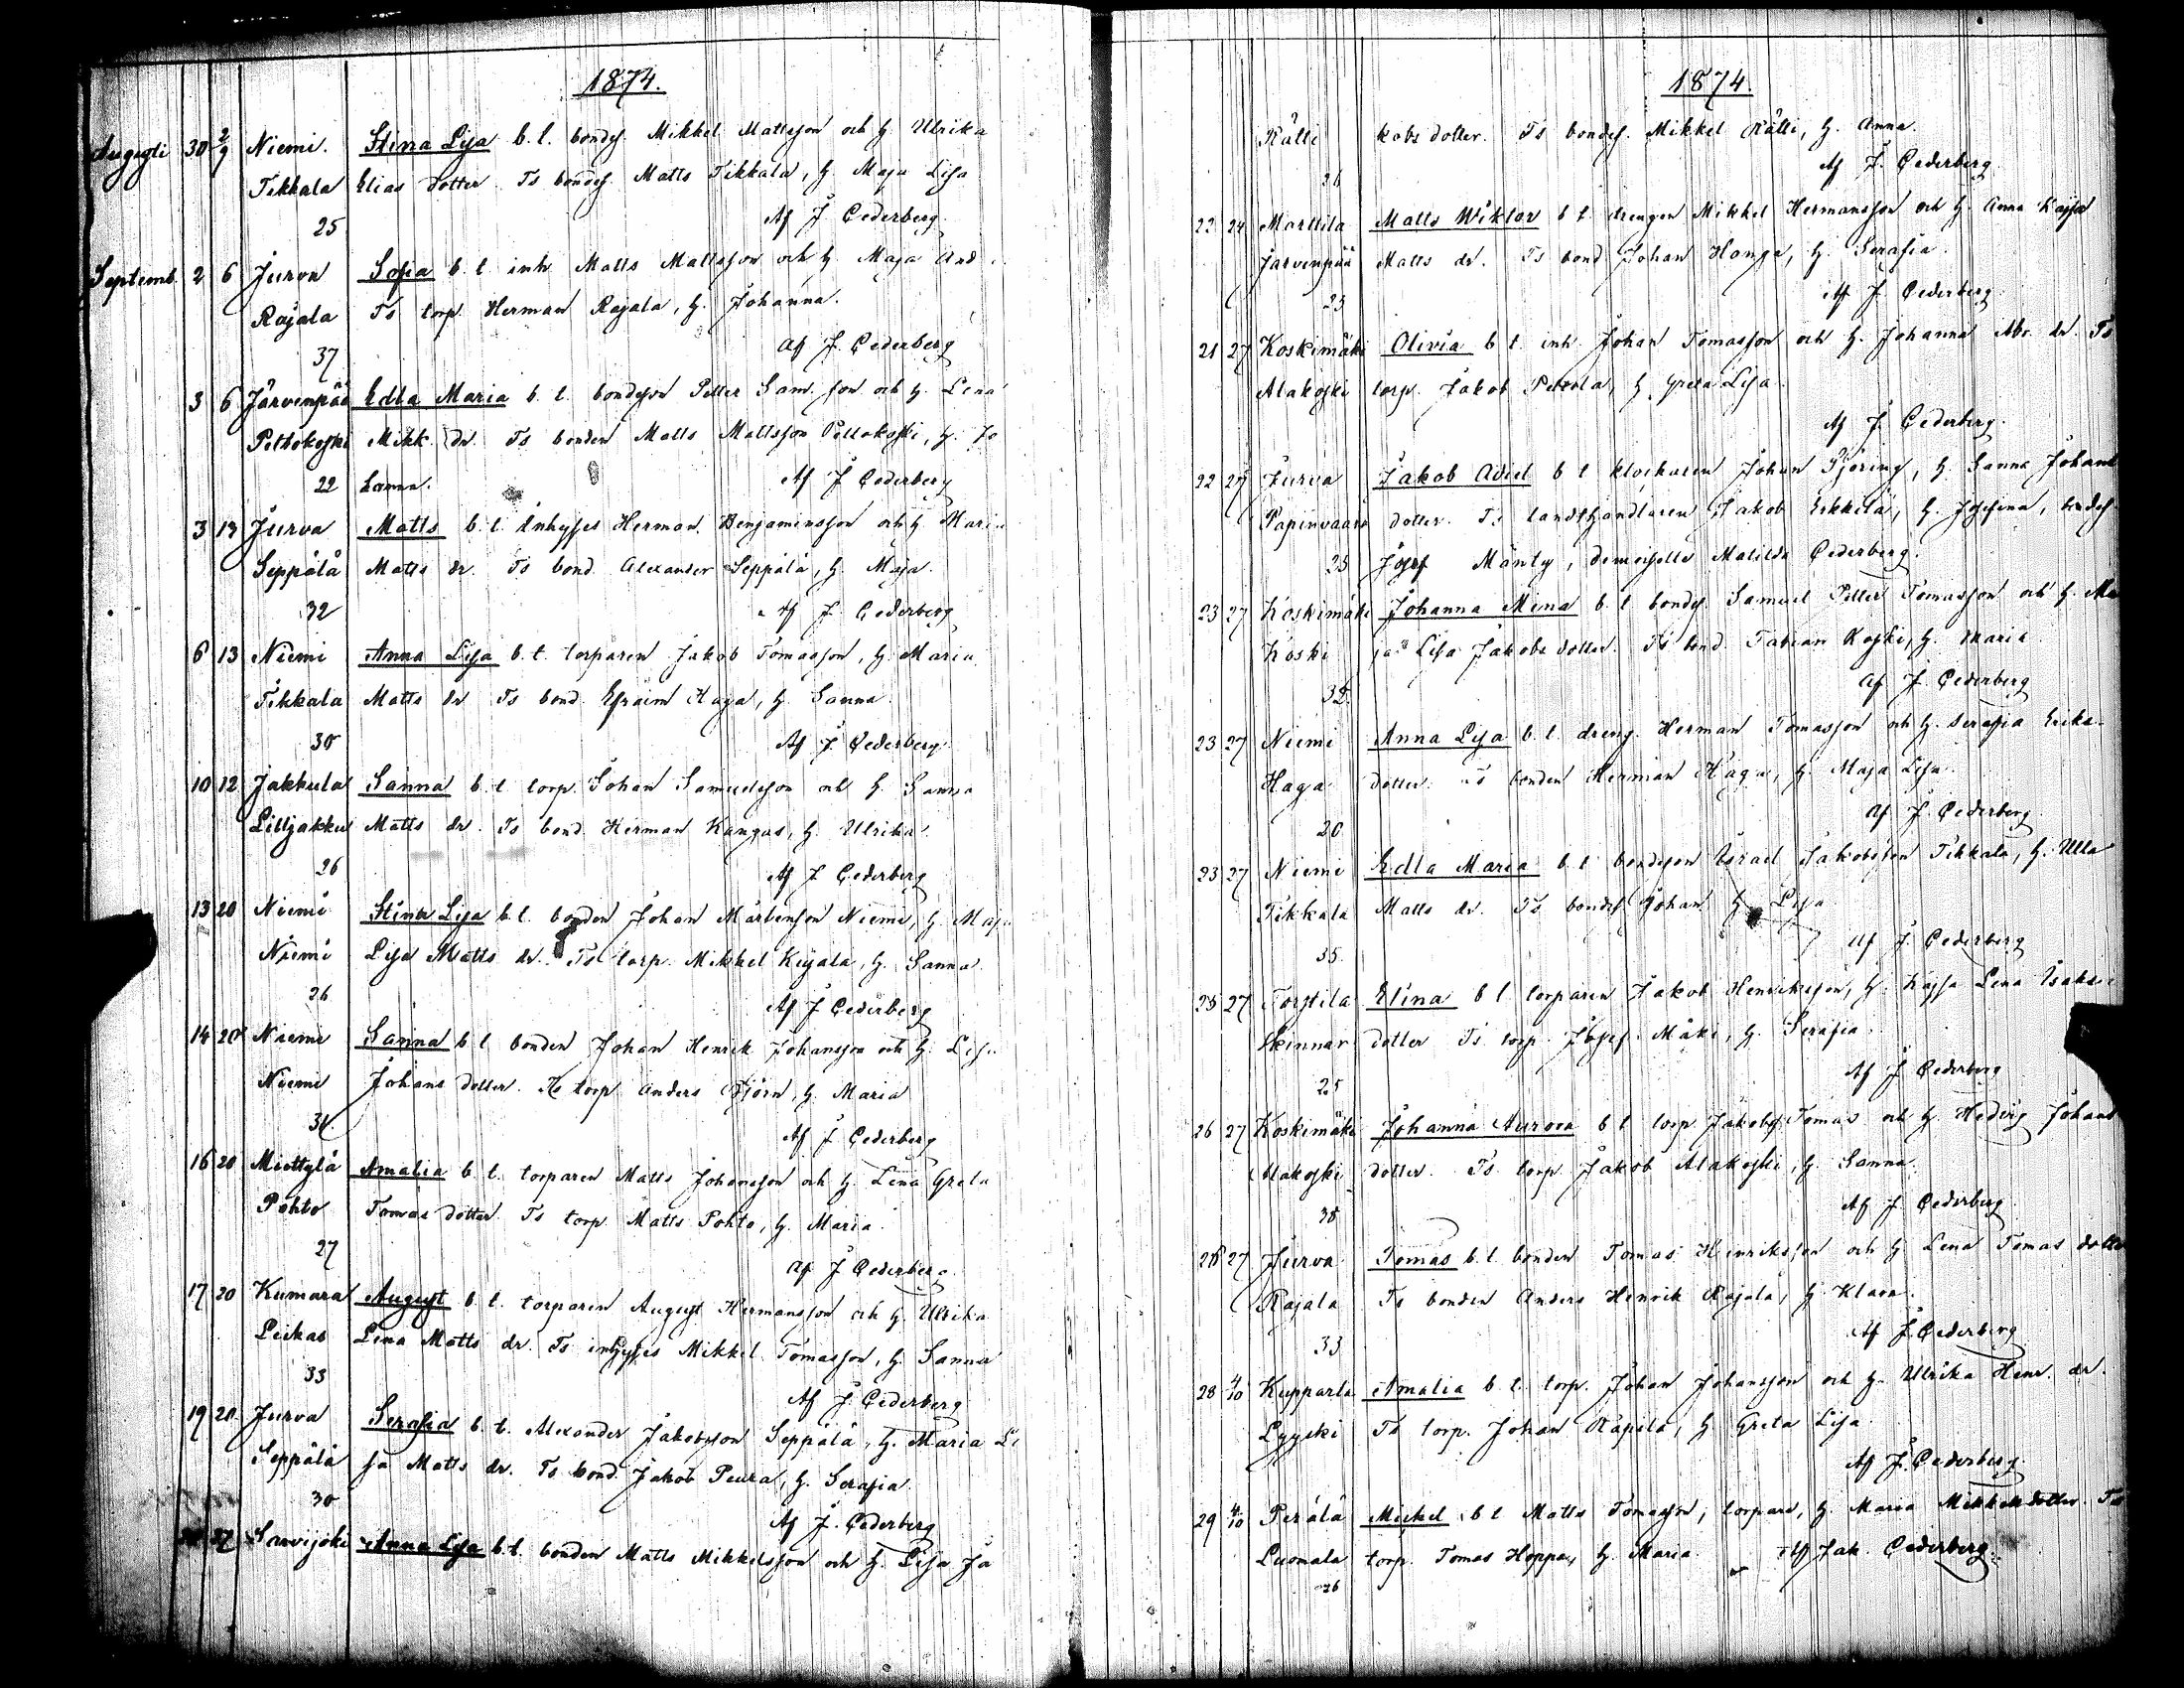 1874.
Augusti 30 2/9 Niemi. Stina Lisa b. l. bondes. Mikkel Mattsson och h. Ulrika
Tikkala Elias dotter Ts bondes. Matts Tikkala, h. Maja Lisa
25 Af J. Cederberg.
Septemb. 2 6 Jurva Sofia b. l. inh. Matts Mattsson och h. Maja And
Rajala Ts torp. Herman Rajala, h. Johanna.
37 Af J. Cederberg
3 6 Järvenpää Edla Maria b. l. bondeson Petter Sam. son och h. Lena
Peltokoski Mikk. dr. Ts bonden Matts Mattsson Peltokoski, h. Jo
22 hanna. Af J. Cederberg
3 13 Jurva Matts b. l. Inhyses Herman Benjaminsson och h. Maria
Seppälä Matts dr. Ts bond. Alexander Seppälä, h. Maja.
32 Af J. Cederberg
6 13 Niemi Anna Lisa b. l. torparen Jakob Tomasson, h. Maria
Tikkala Matts dr Ts bond. Efraim Haga, h. Sanna.
30 Af J. Cederberg.
10 12 Jakkula Sanna b. l. torp. Johan Samuelsson och h. Sanna
Lilljakku Matts dr. Ts bond. Herman Kangas, h. Ulrika.
26 Af J. Cederberg
13 20 Niemi Stina Lisa b. l. bonden Johan Mårtensson Niemi, h. Maja
Niemi Lisa Matts dr. Ts torp. Mikkel Kujala, h. Sanna.
26 Af J. Cederberg
14 20 Niemi Sanna b. l. bonden Johan Henrik Johansson och h. Lisa
Niemi Johans dotter. Ts torp. Anders Björn, h. Maria
31 Af J. Cederberg
16 20 Miettylä Amalia b. l. torparen Matts Johansson och h. Lena Greta
Pohto Tomas dotter Ts torp. Matts Pohto, h. Maria.
27 Af J. Cederberg.
17 20 Kumara August b. l. torparen August Hermansson och h. Ulrika
Leikas Lena Matts dr. Ts inhyses Mikkel Tomasson, h. Sanna
33 Af J. Cederberg
19 20 Jurva Serafia b. l. Alexander Jakobsson Seppälä, h. Maria Li
Seppälä sa Matts dr. Ts bond. Jakob Peura, h. Serafia.
30 Af J. Cederberg
27 Sarvijoki Anna Lisa b. l. bonden Matts Mikkelsson och h. Lisa Ja
1874.
Rälli kobs dotter. Ts bondes. Mikkel Rälli, h. Anna.
26 Af J. Cederberg
22 24 Marttila Matts Wiktor b. l. drengen Mikkel Hermansson och h. Anna Kajsa
Järvenpää Matts dr. Ts bond Johan Honga, h. Serafia.
23 Af J. Cederberg.
21 27 Koskimäki Olivia b. l. inh. Johan Tomasson och h. Johanna Abr. dr. Ts
Alakoski torp. Jakob Pettola, h. Greta Lisa.
Af J. Cederberg.
22 27 Jurva Jakob Adiel b. l. klockaren Johan, h. Sanna Johans
Papinvaara dotter. Ts landthandlaren Jakob Erkkilä, h. Josefina, bondes.
25 Josef Mänty, demoiselle Matilda Cederberg.
23 27 Koskimäki Johanna Mina b. l. bondes. Samuel Petter Tomasson och h. Ma
Koski ja Lisa Jakobs dotter. Ts bond. Fabian Koski, h. Maria
32. Af J. Cederberg
23 27 Niemi Anna Lisa b. l. dreng. Herman Tomasson och h. Serafia Eriks
Haga dotter. Ts bonden Herman Haga, h. Maja Lisa.
20 Af J. Cederberg
23 27 Niemi Edla Maria b. l. bondeson Israel Jakobsson Tikkala, h. Ulla
Tikkala Matts dr. Ts bondes Johan h. Lisa
35. Af J. Cederberg
25 27 Torstila Elina b. l. torparen Jakob Henriksson, h. Kajsa Lena Isaks
Skinnar dotter Ts torp. Josef Mäki, h. Serafia.
25 Af J. Cederberg
26 27 Koskimäki Johanna Aurora b. l. torp. Jakobs Tomas och h. Hedvig Johans
Alakoski dotter. Ts torp. Jakob Alakoski, h. Sanna.
38 Af J. Cederberg
26 27 Jurva Tomas b. l. bonden Tomas Henriksson och h. Lena Tomas dotter
Rajala Ts bonden Anders Henrik Rajala, h. Klara.
33 Af J. Cederberg
28 4/10 Kupparla Amalia b. l. torp. Johan Johansson och h. Ulrika Henr. dr.
Lyyski Ts torp. Johan Rapila, h. Greta Lisa.
Af J. Cederberg.
29 4/10 Perälä Mickel b. l. Matts Tomasson, torpare, h. Maria Mikkels dotter. Ts
Luomala torp. Tomas Hoppa, h. Maria. Af Jak. Cederberg.
26